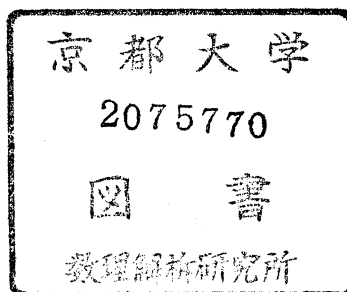 京都大学
2075770
図書
数理解析研究所